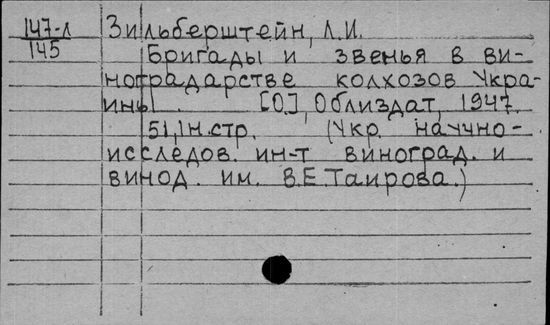 147-л Зильберштейн, Л.И.
145 Бригады и звенья в ви-
ноградарстве колхозов Укра-
ины. [О.], Облиздат, 1947.
51,1н.стр. (Укр. научно-
исследов. ин-т виноград. и
винод. им. В.Е.Таирова.)